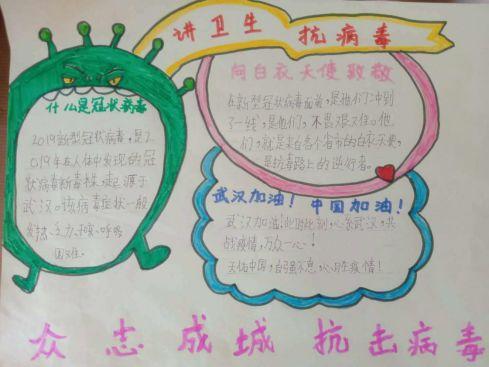 讲卫生 抗病毒
什么是冠状病毒
2019新型冠状病毒,是2
019年在人体中发现的冠
状病毒新毒株,起源于
武汉。该病毒症状一般
发热、乏力、干咳、呼吸
困难。
向白衣天使致敬
在新型冠状病毒面前,是他们冲到
了一线,是他们,不畏艰难。他
们,就是来自各个省市的白衣天使,
是抗毒路上的逆行者。
武汉加油!中国加油!
武汉加油!此时此刻,心系武汉,共
战疫情,万众一心!
天佑中国,自强不息,心系疫情!
众志成城 抗击病毒